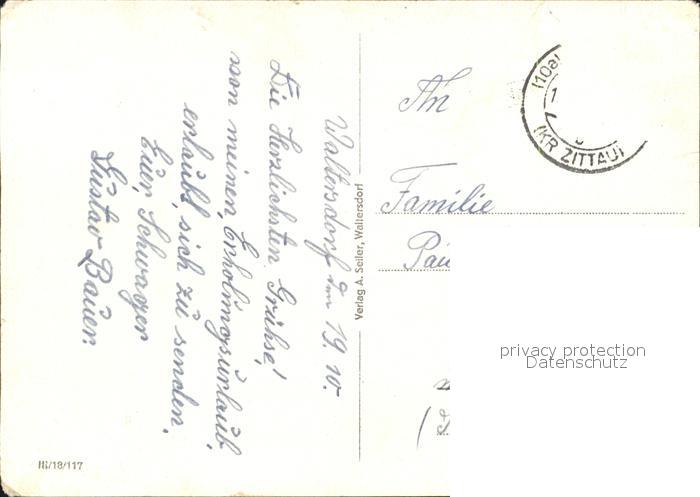 Waltersdorf den 19. 10.
Die Herzlichsten Grühse!
von meinen Erholungsurlaub,
erlaubt, sich zu senden,
Euer Schwager
Gustav Bauer.
Verlag A. Seiler, Waltersdorf
III/18/117
An
Familie
Pau
(10a)
(KR ZITTAU)
privacy protection
Datenschutz